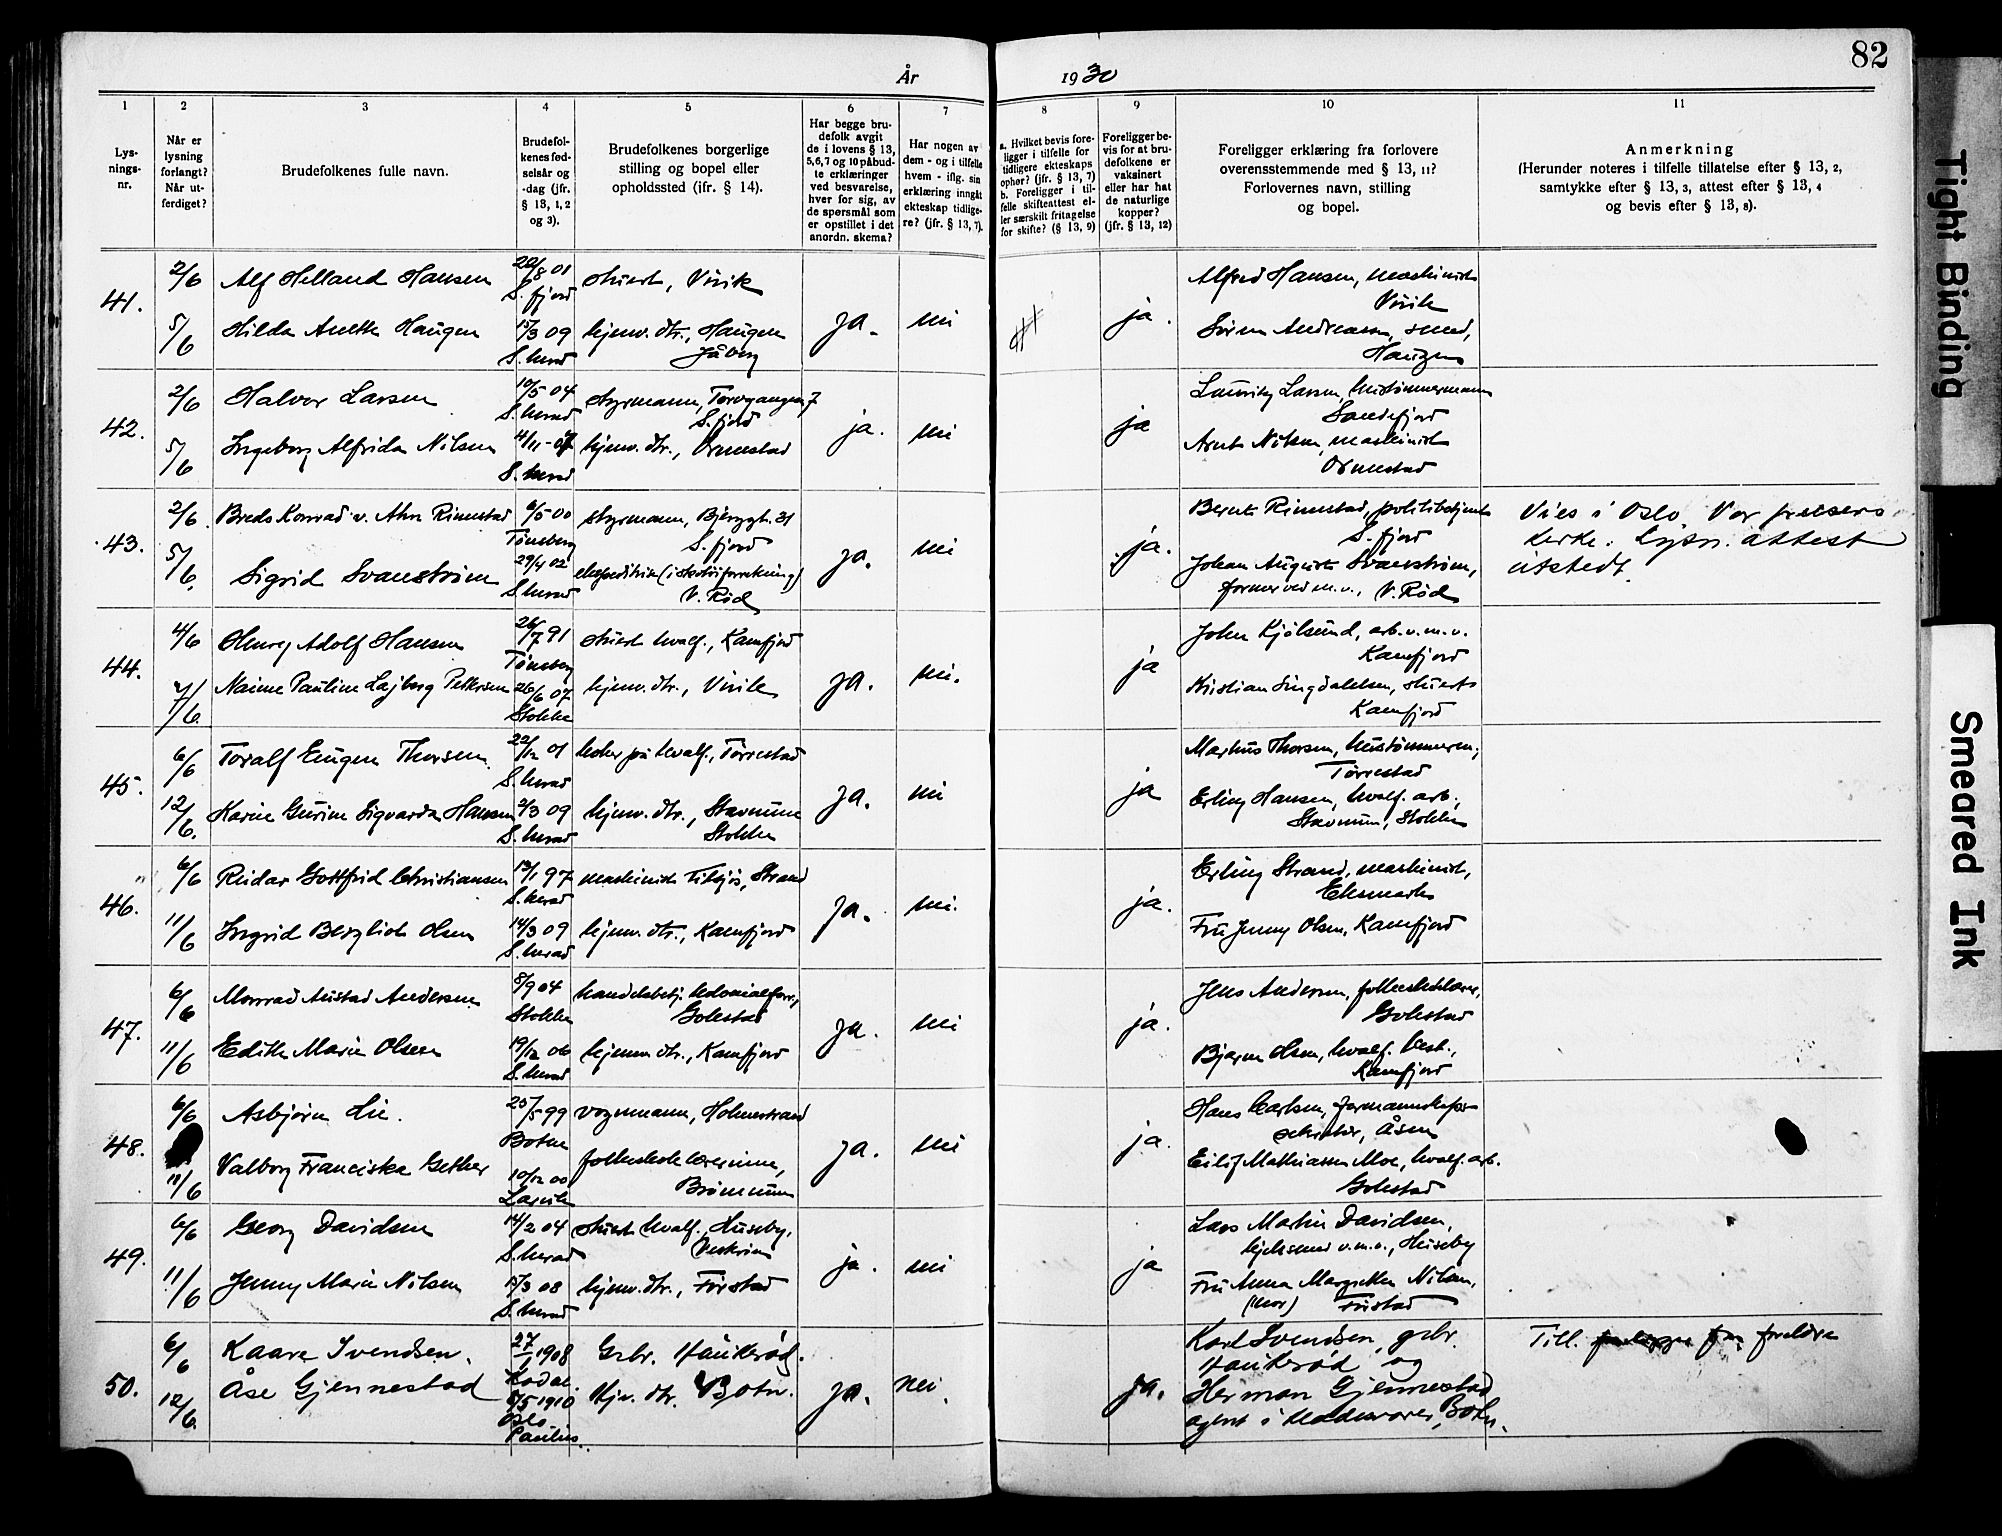 82
År 1930
1 2 3 4 5 6 7 8 9 10 11
Lys-
nings-
nr.
Når er
lysning
forlangt?
Når ut-
ferdiget?
Brudefolkenes fulle navn.
Brudefol-
kenes fød-
selsår og
-dag (jfr.
§ 13, 1, 2
og 3).
Brudefolkenes borgerlige
stilling og bopel eller
opholdssted (jfr. § 14).
Har begge bru-
defolk avgit
de i lovens § 13,
5, 6, 7 og 10 påbud-
te erklæringer
ved besvarelse,
hver for sig, av
de spørsmål som
er opstillet i det
anordn. skema?
Har nogen av
dem - og i tilfelle
hvem - iflg. sin
erklæring inngåt
ekteskap tidlige-
re? (jfr. § 13, 7).
a. Hvilket bevis fore-
ligger i tilfelle for
tidligere ekteskaps
ophør? (jfr. § 13, 7)
b. Foreligger i til-
felle skifteattest el-
ler særskilt fritagelse
for skifte? (§ 13, 9)
Foreligger be-
vis for at bru-
defolkene er
vaksinert
eller har hat
de naturlige
kopper?
(jfr. § 13, 12)
Foreligger erklæring fra forlovere
overensstemmende med § 13, 11?
Forlovernes navn, stilling
og bopel.
Anmerkning
(Herunder noteres i tilfelle tillatelse efter § 13, 2,
samtykke efter § 13, 3, attest efter § 13, 4
og bevis efter § 13, 8).
41.
2/6 Alf Helland Hansen
S. fjord
stuert, Virik
5/6 Hilda Anette Haugen 15/3 09
S. herad
hjemv. dtr., Haugen
Jåberg
ja. nei
ja.
Alfred Hansen, maskinist
Virik
Sören Andreassen, smed,
Haugen
42.
2/6 Halvor Larsen 10/5 04
S. herad
styrmann, Torvgangen 7
S. fjord
5/6 Ingeborg Alfrida Nilsen
S. herad
hjemv. dtr., Ormestad
ja. nei
ja
Lauritz Larsen, hustömmermann
Sandefjord
Arnt Nilsen, maskinist
Ormestad
43.
2/6. Konrad v. Rimestad 6/5 00
Tönsberg
styrmann, Bjerggt. 31
S. fjord
5/6. Sigrid Svanström 29/4 02
S. herad
V. Röd
ja. nei
ja.
Bernt Rimestad, politibetjent
S. fjord
Johan August Svanström,
former ved m.v., V. Röd
Vies i Oslo, Vor frelsers
kirke. Lysn. attest
utstedt.
44.
4/6 Henry Adolf Hansen 26/7 91
Tönsberg
stuert hvalf., Kamfjord
7/6. Pauline Pettersen 26/6 07
Stokke
hjemv. dtr., Virik
ja. nei.
ja
John Kjölsund, arb. v. m. v.
Kamfjord
Kristian Lingdalelsen, stuert
Kamfjord
45.
6/6 Toralf Eugen Thorsen 22/12 01
S. herad
koker på hvalf., Törrestad
12/6. Karine Gurine Sigvarda Hansen 2/3 09
S. herad
hjemv. dtr., Stavnum
Stokke
ja. nei
ja
Markus Thorsen, hustömmerm.,
Törrestad
Erling Hansen, hvalf. arb.,
Stavnum, Stokke
46.
6/6 Reidar Gottfrid Christiansen
S. herad
maskinist tilsjös, Strand
11/6 Ingrid Bergliot Olsen 14/3 09
S. herad
hjemv. dtr., Kamfjord
ja. nei.
ja.
Erling Strand, maskinist,
Ekmark
Fru Jenny Olsen, Kamfjord
47.
6/6 Austad Andersen 8/9 04
Stokke
handelsbetj. kolonialforr.,
Gokstad
11/6 Edith Marie Olsen 19/12 06
S. herad
hjemv. dtr., Kamfjord
ja. nei
ja.
Jens Andersen, folkeskolelærer,
Gokstad
Bjarne Olsen, hvalf. best.,
Kamfjord
48.
6/6 Asbjörn Lie. 25/5 99
Botne
vognmann, Holmestrand
11/6 Valborg Franciska Gether 10/12 00
Larvik
folkeskolelærerinne,
Brömnum
ja. nei
ja.
Hans Carlsen, formannskaps-
sekretær, Åsen
Eilif Mathiassen Moe, hvalf. arb.
Gokstad
49.
6/6 Georg Davidsen 14/2 04
S. herad
stuert hvalf., Huseby,
Vestreim
11/6 Jenny Marie Nilsen 15/3 08
S. herad
hjemv. dtr., Förstad
ja. nei
ja
Lars Martin Davidsen,
kjelesmed v.m.v., Huseby
Fru Anna Margrethe Nilsen,
(mor) Fristad
50.
6/6 Kaare Svendsen. 27/1 1908
Kodal
Grbr. Haukeröd.
12/6. Åse Gjennestad 8/5 1910
Oslo
Paulus.
Hjv. dtr. Botn.
ja. nei.
ja.
Karl Svendsen, grbr.
Haukeröd og
Herman Gjennestad
agent i Botn.
Till. foreldre
Tight Binding
Smeared Ink